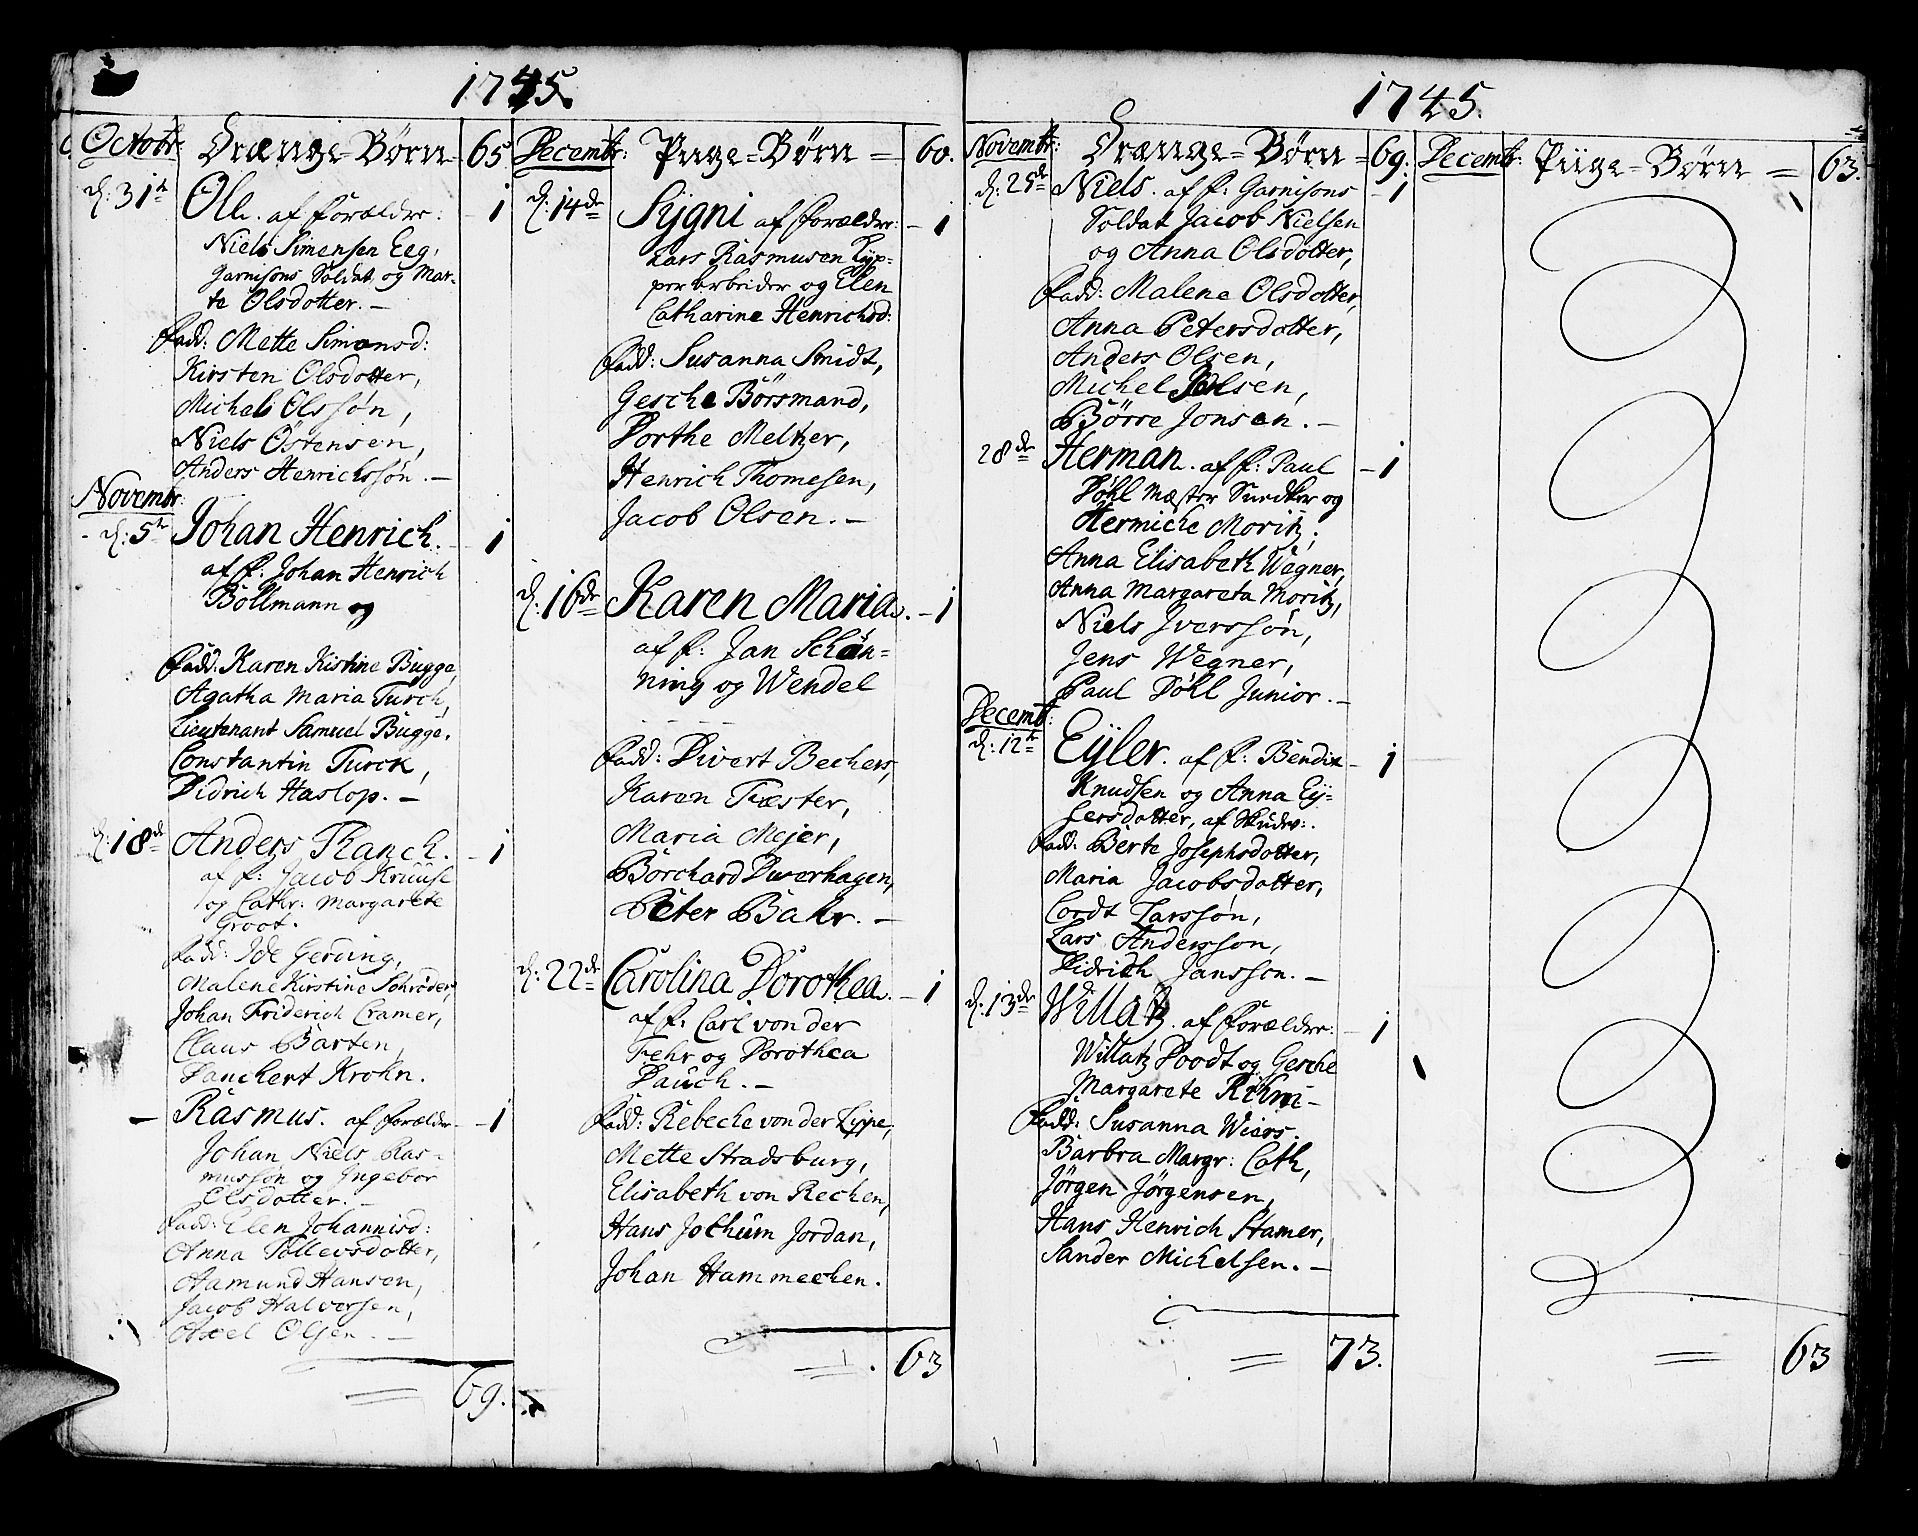 1745.
Octobr: Drænge-Börn 65
d: 31te Ole. af forældre: - 1
Niels Simensen Eeg,
Garnisons Soldat og Mar-
te Olsdotter. -
Fadd: Mette Simonsd:
Kirsten Olsdotter,
Michel Olssøn,
Niels Östensen,
Anders Henrichssøn. -
Novembr:
d: 5te Johan Henrich. - 1
af f: Johan Henrich
Böllmann og
Fadd: Karen Kistine Bugge,
Agatha Maria Turck,
Lieutenant Samuel Bugge,
Constantin Turck,
Didrich Haslop. -
d: 18de Anders Kanck. - 1
af f: Jacob Kruuse
og Cathr: Margarete
Groot.
Fadd: Ide Gerding,
Malene Kirstine Schrøder,
Johan Friderich Cramer,
Claus Barten,
Danckert Krohn.
- Rasmus. af forældre - 1
Johan Niels Ras-
mussøn og Ingebor
Elsdotter. -
Fadd: Elen Johannisd:
Anna Tollevsdotter,
Aamund Hanson,
Jacob Halversen,
Axel Olsen. -
= 69.
Decembr: Piige-Börn = 60.
d: 14de Sygni af forældre: - 1
Lars Rasmusen Kyp-
per Arbeider og Elen
Catharine Henrichsd:
Fadd: Susanna Smidt,
Gesche Börsmand,
Dorthe Meltzer,
Henrich Thomesen,
Jacob Olsen. -
d: 16de Karen Maria. - 1
af f: Jan Schøn-
ning og Wendel
Fadd: Divert Bechers,
Karen Fæster,
Maria Mejer,
Borchard Dverhagen,
Peter Bahr. -
d: 22de Carolina Dorothea. - 1
af f: Carl von der
Fehr og Dorothea
Dauch. -
Fadd: Rebecke von der Lippe,
Mette Stradsburg,
Elisabeth von Rechen,
Hans Jochum Jordan,
Johan Hammechen.
= 63
1745.
Novembr: Drænge-Börn = 69.
d: 25de Niels. af f: Garnisons - 1
Soldat Jacob Nielsen
og Anna Olsdotter,
Fadd: Malene Olsdotter,
Anna Petersdotter,
Anders Olsen,
Michel Olsen,
Börre Jonsen. -
28de Herman. af f: Paul - 1
Döhl Mæster Snedker og
Hermiche Moritz;
Anna Elisabeth Wegner,
Anna Margareta Moritz,
Niels Iverssøn,
Jens Wegner,
Paul Döhl Junior. -
Decemb:
d: 12te Eyler. af f: Bendix - 1
Knudsen og Anna Ey-
lersdotter, af Skudev:.
Fadd: Berte Josephsdotter,
Maria Jacobsdotter,
Cordt Larssøn,
Lars Andersson,
Didrich Jansson. -
d: 13de Willatz. af forældre: - 1
Willatz Doodt og Gesche
Margarete
Fadd: Susanna Wiers.
Barbra Margr: Cath,
Jørgen Jørgensen,
Hans Henrich Stamer,
Sander Michelsen. -
= 73.
Decembr: Piige-Börn = 63.
= 63